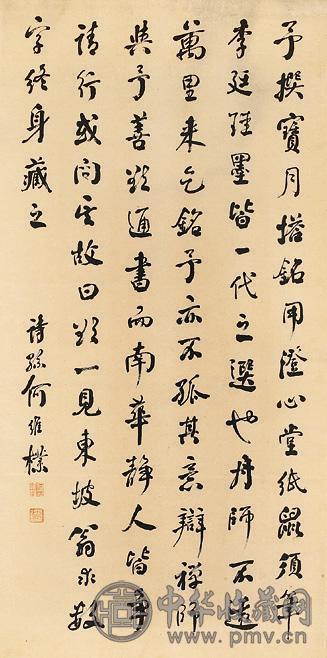 予撰寶月塔銘用澄心堂紙鼠須筆
李廷珪墨皆一代之選也舟師不遠
萬里来乞銘予亦不孤其意辯禪師
與予善欲通書而南華静人皆争
請行或問其故曰欲一見東坡翁求数
字終身藏之
詩孫何維樸
中华收藏网
www.pmv.cn